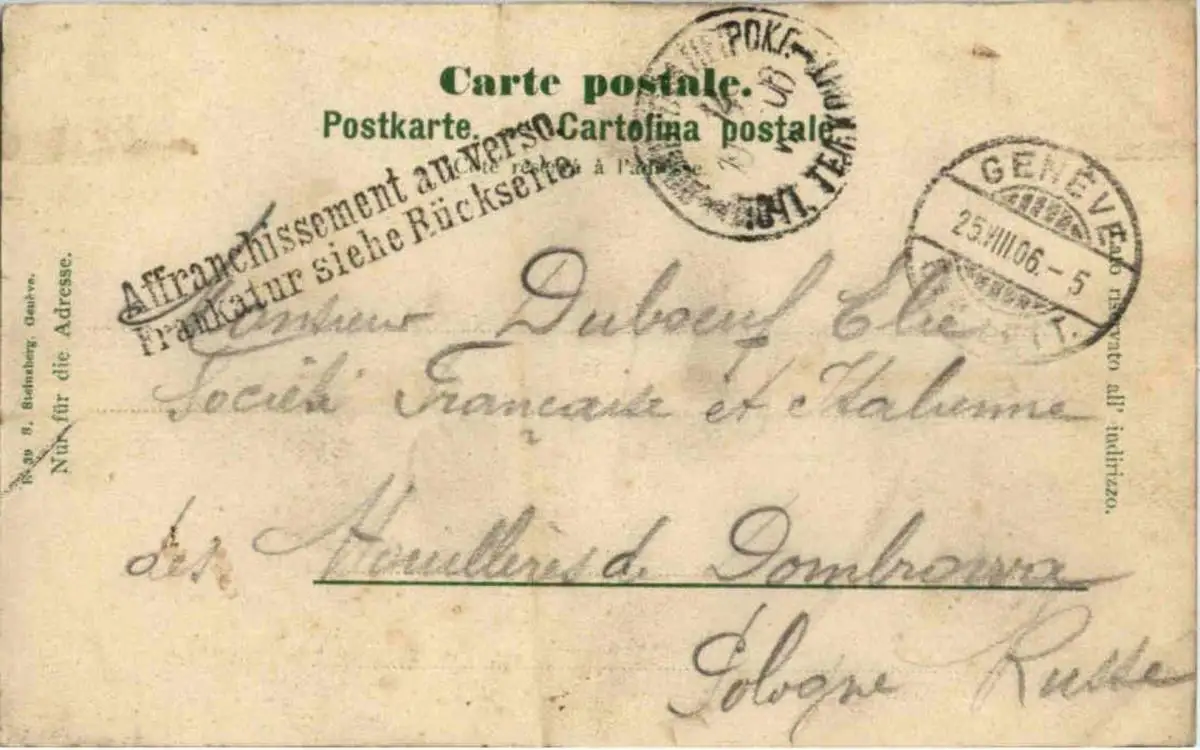 Carte postale.
Postkarte. Cartolina postale
Côté réservé à l'adresse.
Affranchissement au verso.
Frankatur siehe Rückseite.
ПЕТРОК.
ПОЧТ. ТЕЛ.
GENÈVE
25.VIII.06.-5
Monsieur Duboeuf Elie
Société Française et Italienne
des Houillères d. Dombrowa
Pologne Russe
Nur für die Adresse.
S. Steinsberg, Genève.
Lato riservato all' indirizzo.